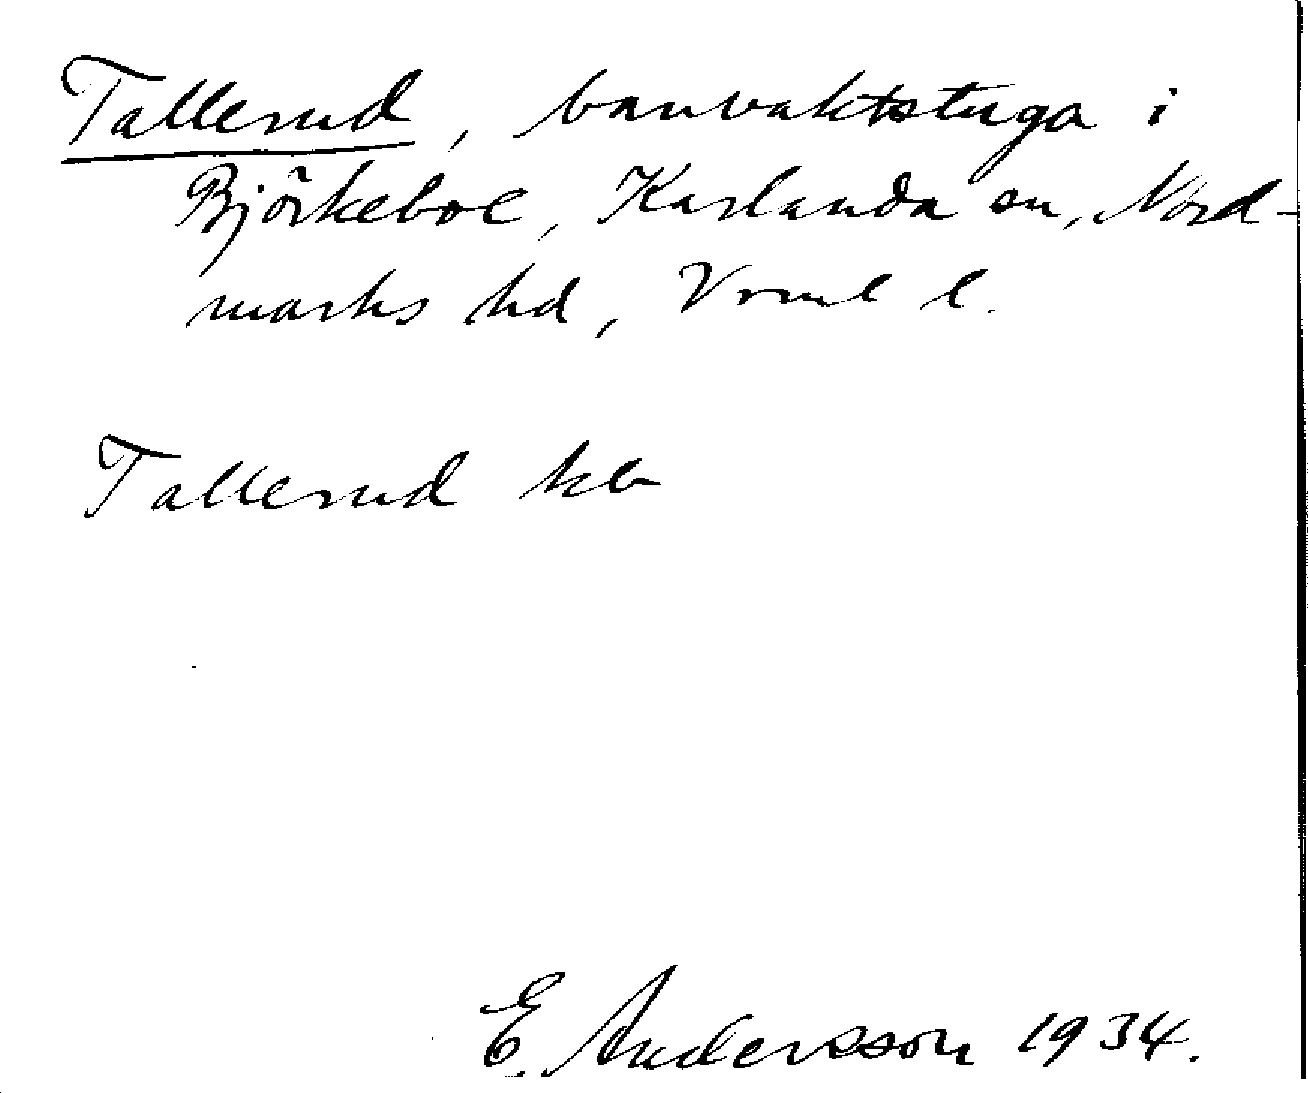 Tallerud, banvaktstuga i
Björkebol, Karlanda sn, Nord-
marks hd, Vrml l.
Tallerud kb
E. Andersson 1934.